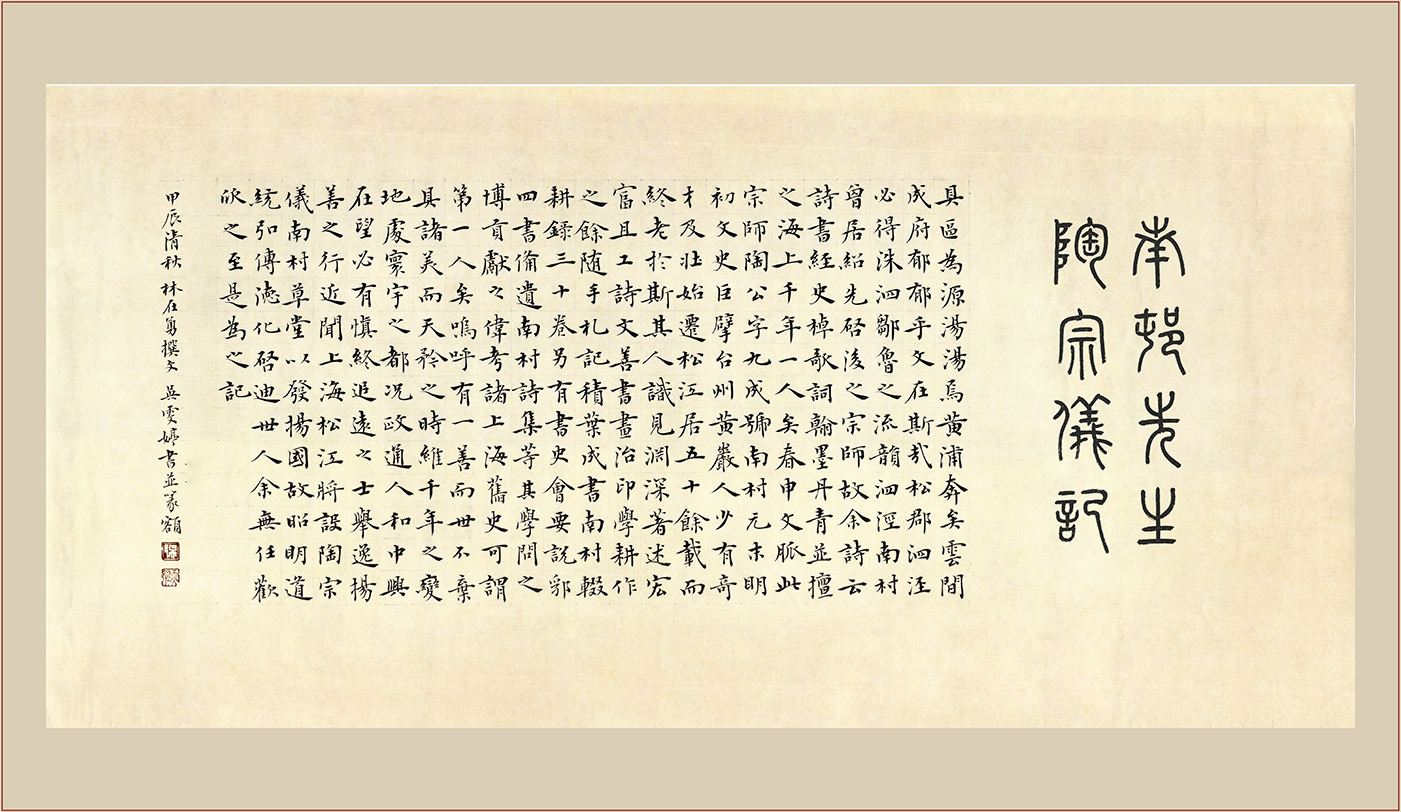 南邨先生
陶宗儀記
具區為源湯湯焉黃浦奔矣雲間
成府郁郁乎文在斯哉松郡泗涇
必得洙泗鄒魯之流韻泗涇南村
曾居紹先啓後之宗師故余詩云
詩書經史棹歌詞翰墨丹青並擅
之海上千年一人矣春申文脈此
宗師陶公字九成號南村元末明
初文史巨擘台州黃巖人少有奇
才及壯始遷松江居五十餘載而
終老於斯其人識見淵深著述宏
富且工詩文善書畫治印學耕作
之餘随手札記積葉成書南村輟
耕錄三十卷另有書史會要說郛
四書俻遺南村詩集等其學問之
博貢獻之偉考諸上海舊史可謂
第一人矣嗚呼有一善而世不棄
具諸美而天矜之時維千年之變
地處寰宇之都况政通人和中興
在望必有慎終追遠之士舉逸揚
善之行近聞上海松江將設陶宗
儀南村草堂以發揚國故昭明道
統弘傳德化啓迪世人余無任歡
欣之至是為之記
甲辰清秋 林在勇撰文 吳雯婷書並篆額